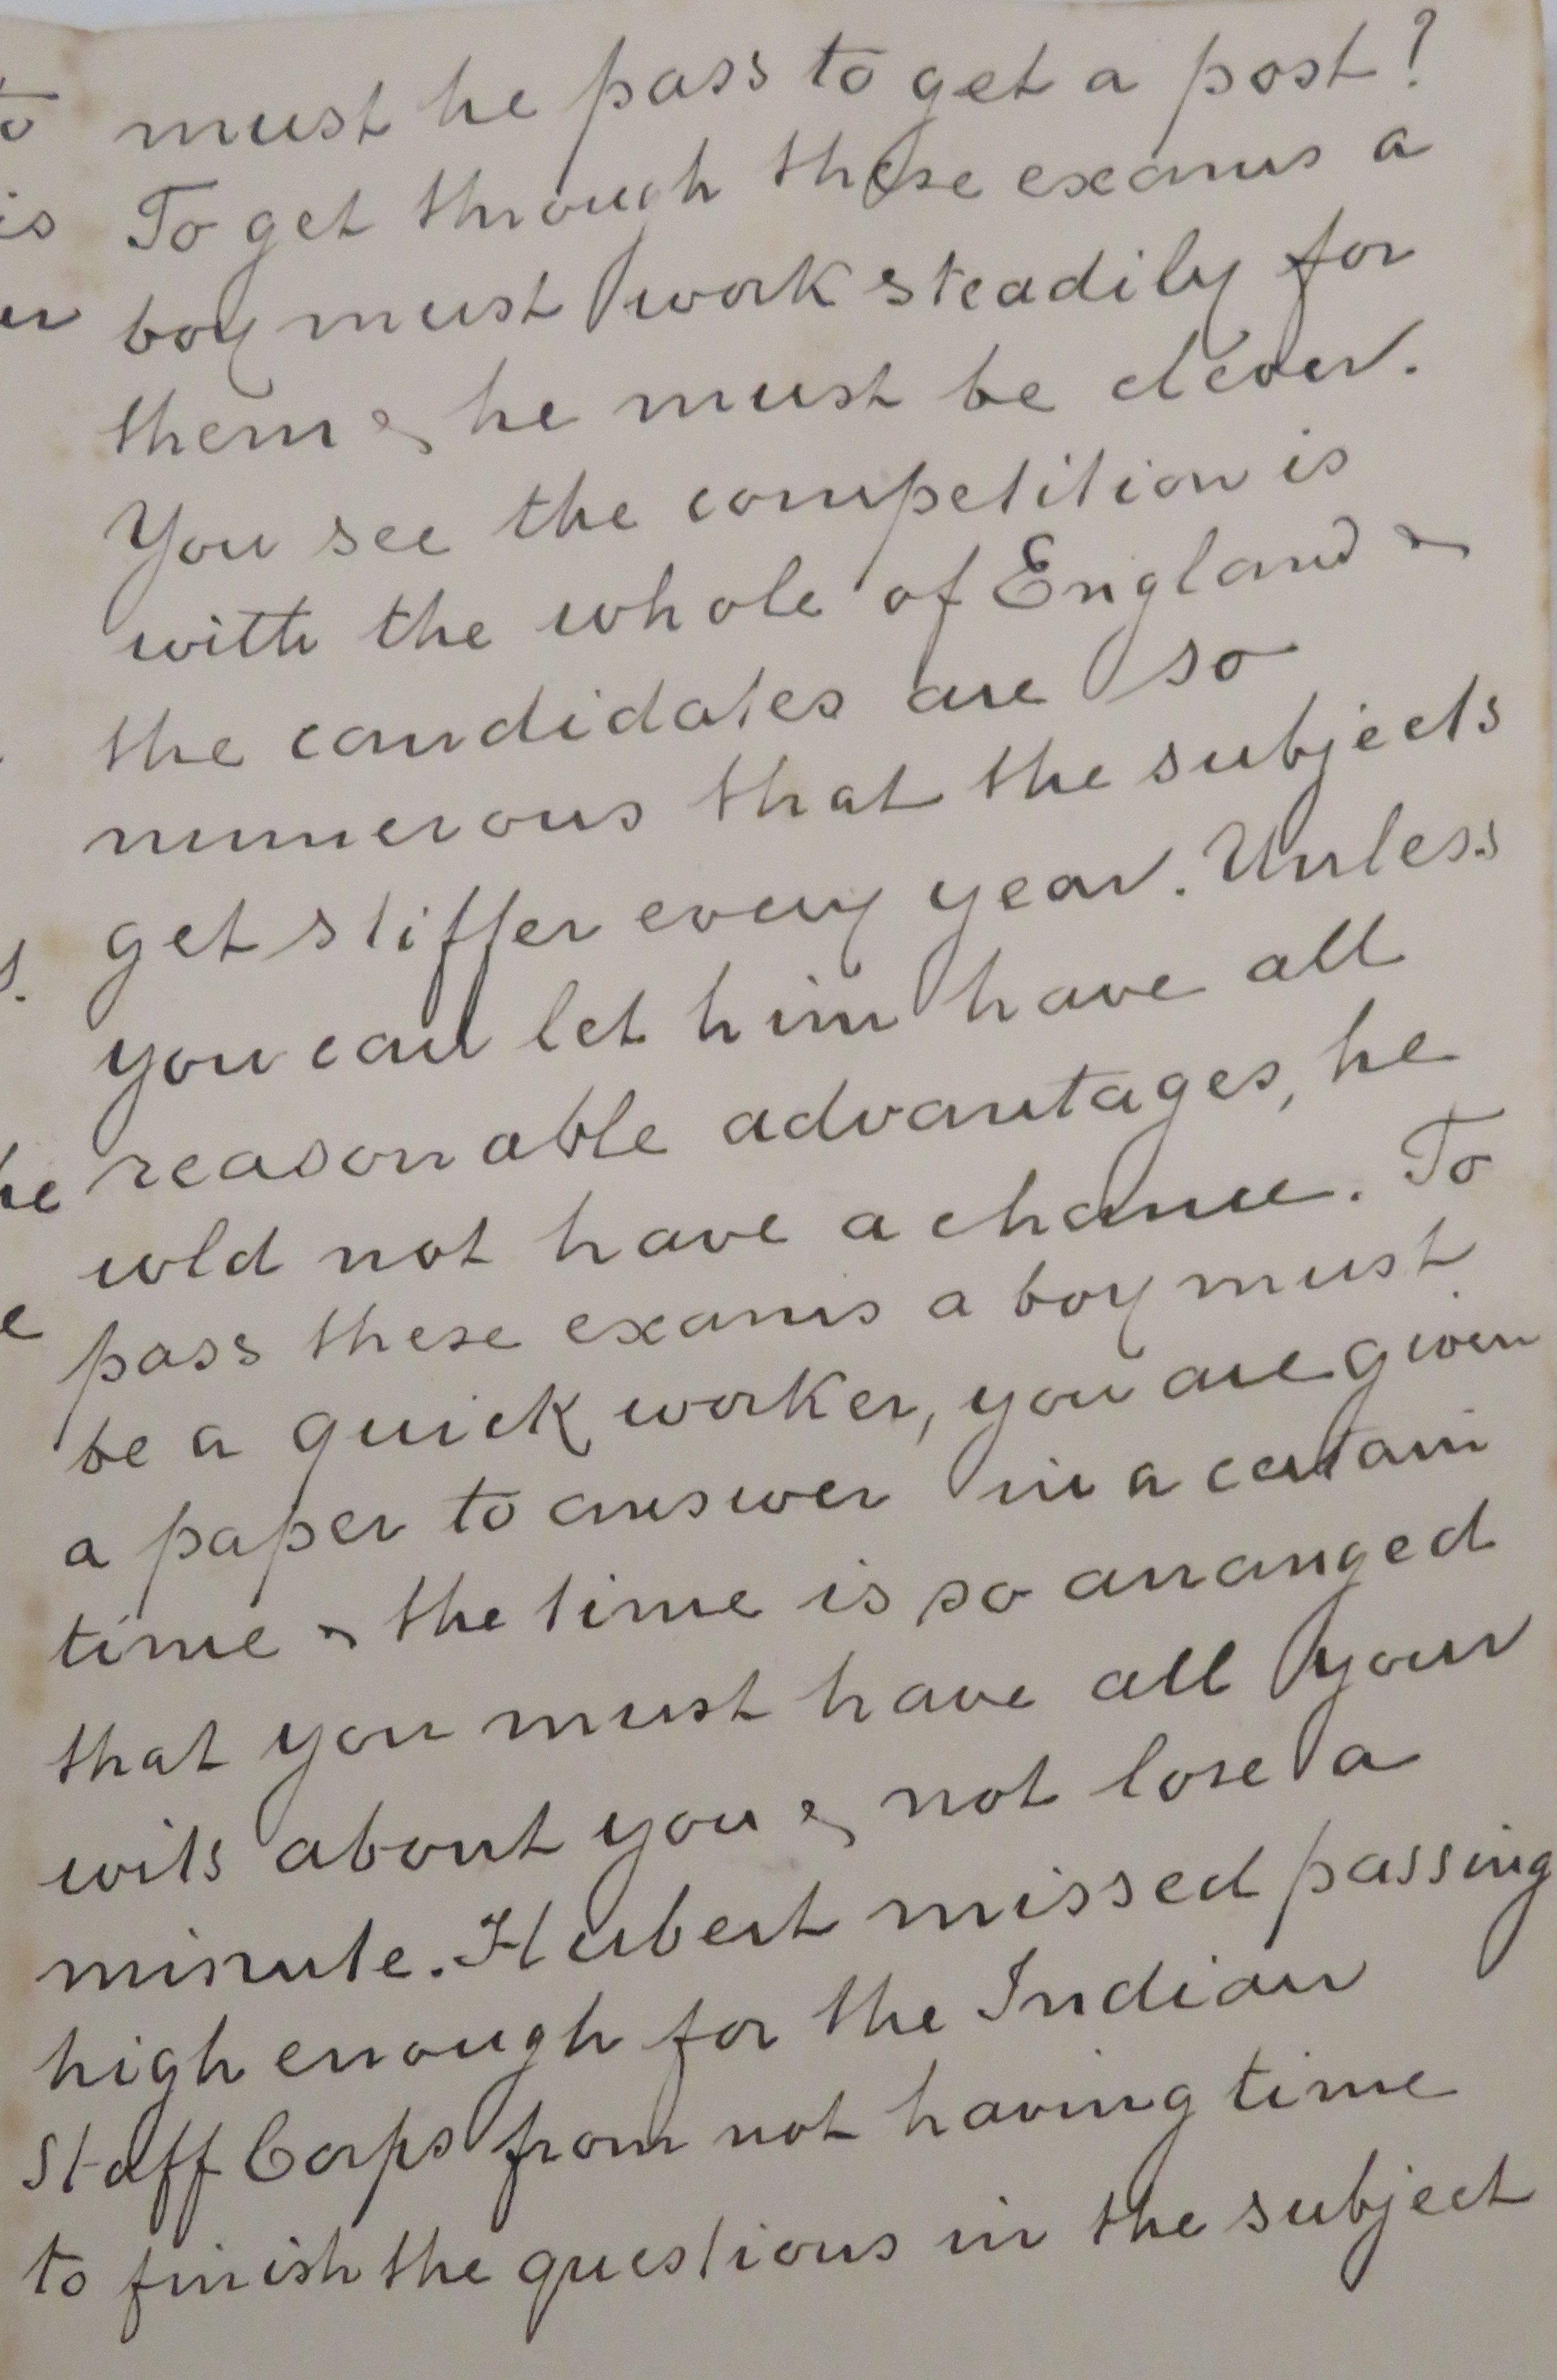 must he pass to get a post?
To get through these exams a
boy must work steadily for
them & he must be clever.
You see the competition is
with the whole of England &
the candidates are so
numerous that the subjects
get stiffer every year. Unless
you can let him have all
reasonable advantages, he
wld not have a chance. To
pass these exams a boy must
be a quick worker, you are given
a paper to answer in a certain
time & the time is so arranged
that you must have all your
wits about you & not lose a
minute. Hubert missed passing
high enough for the Indian
Staff Corps from not having time
to finish the questions in the subject